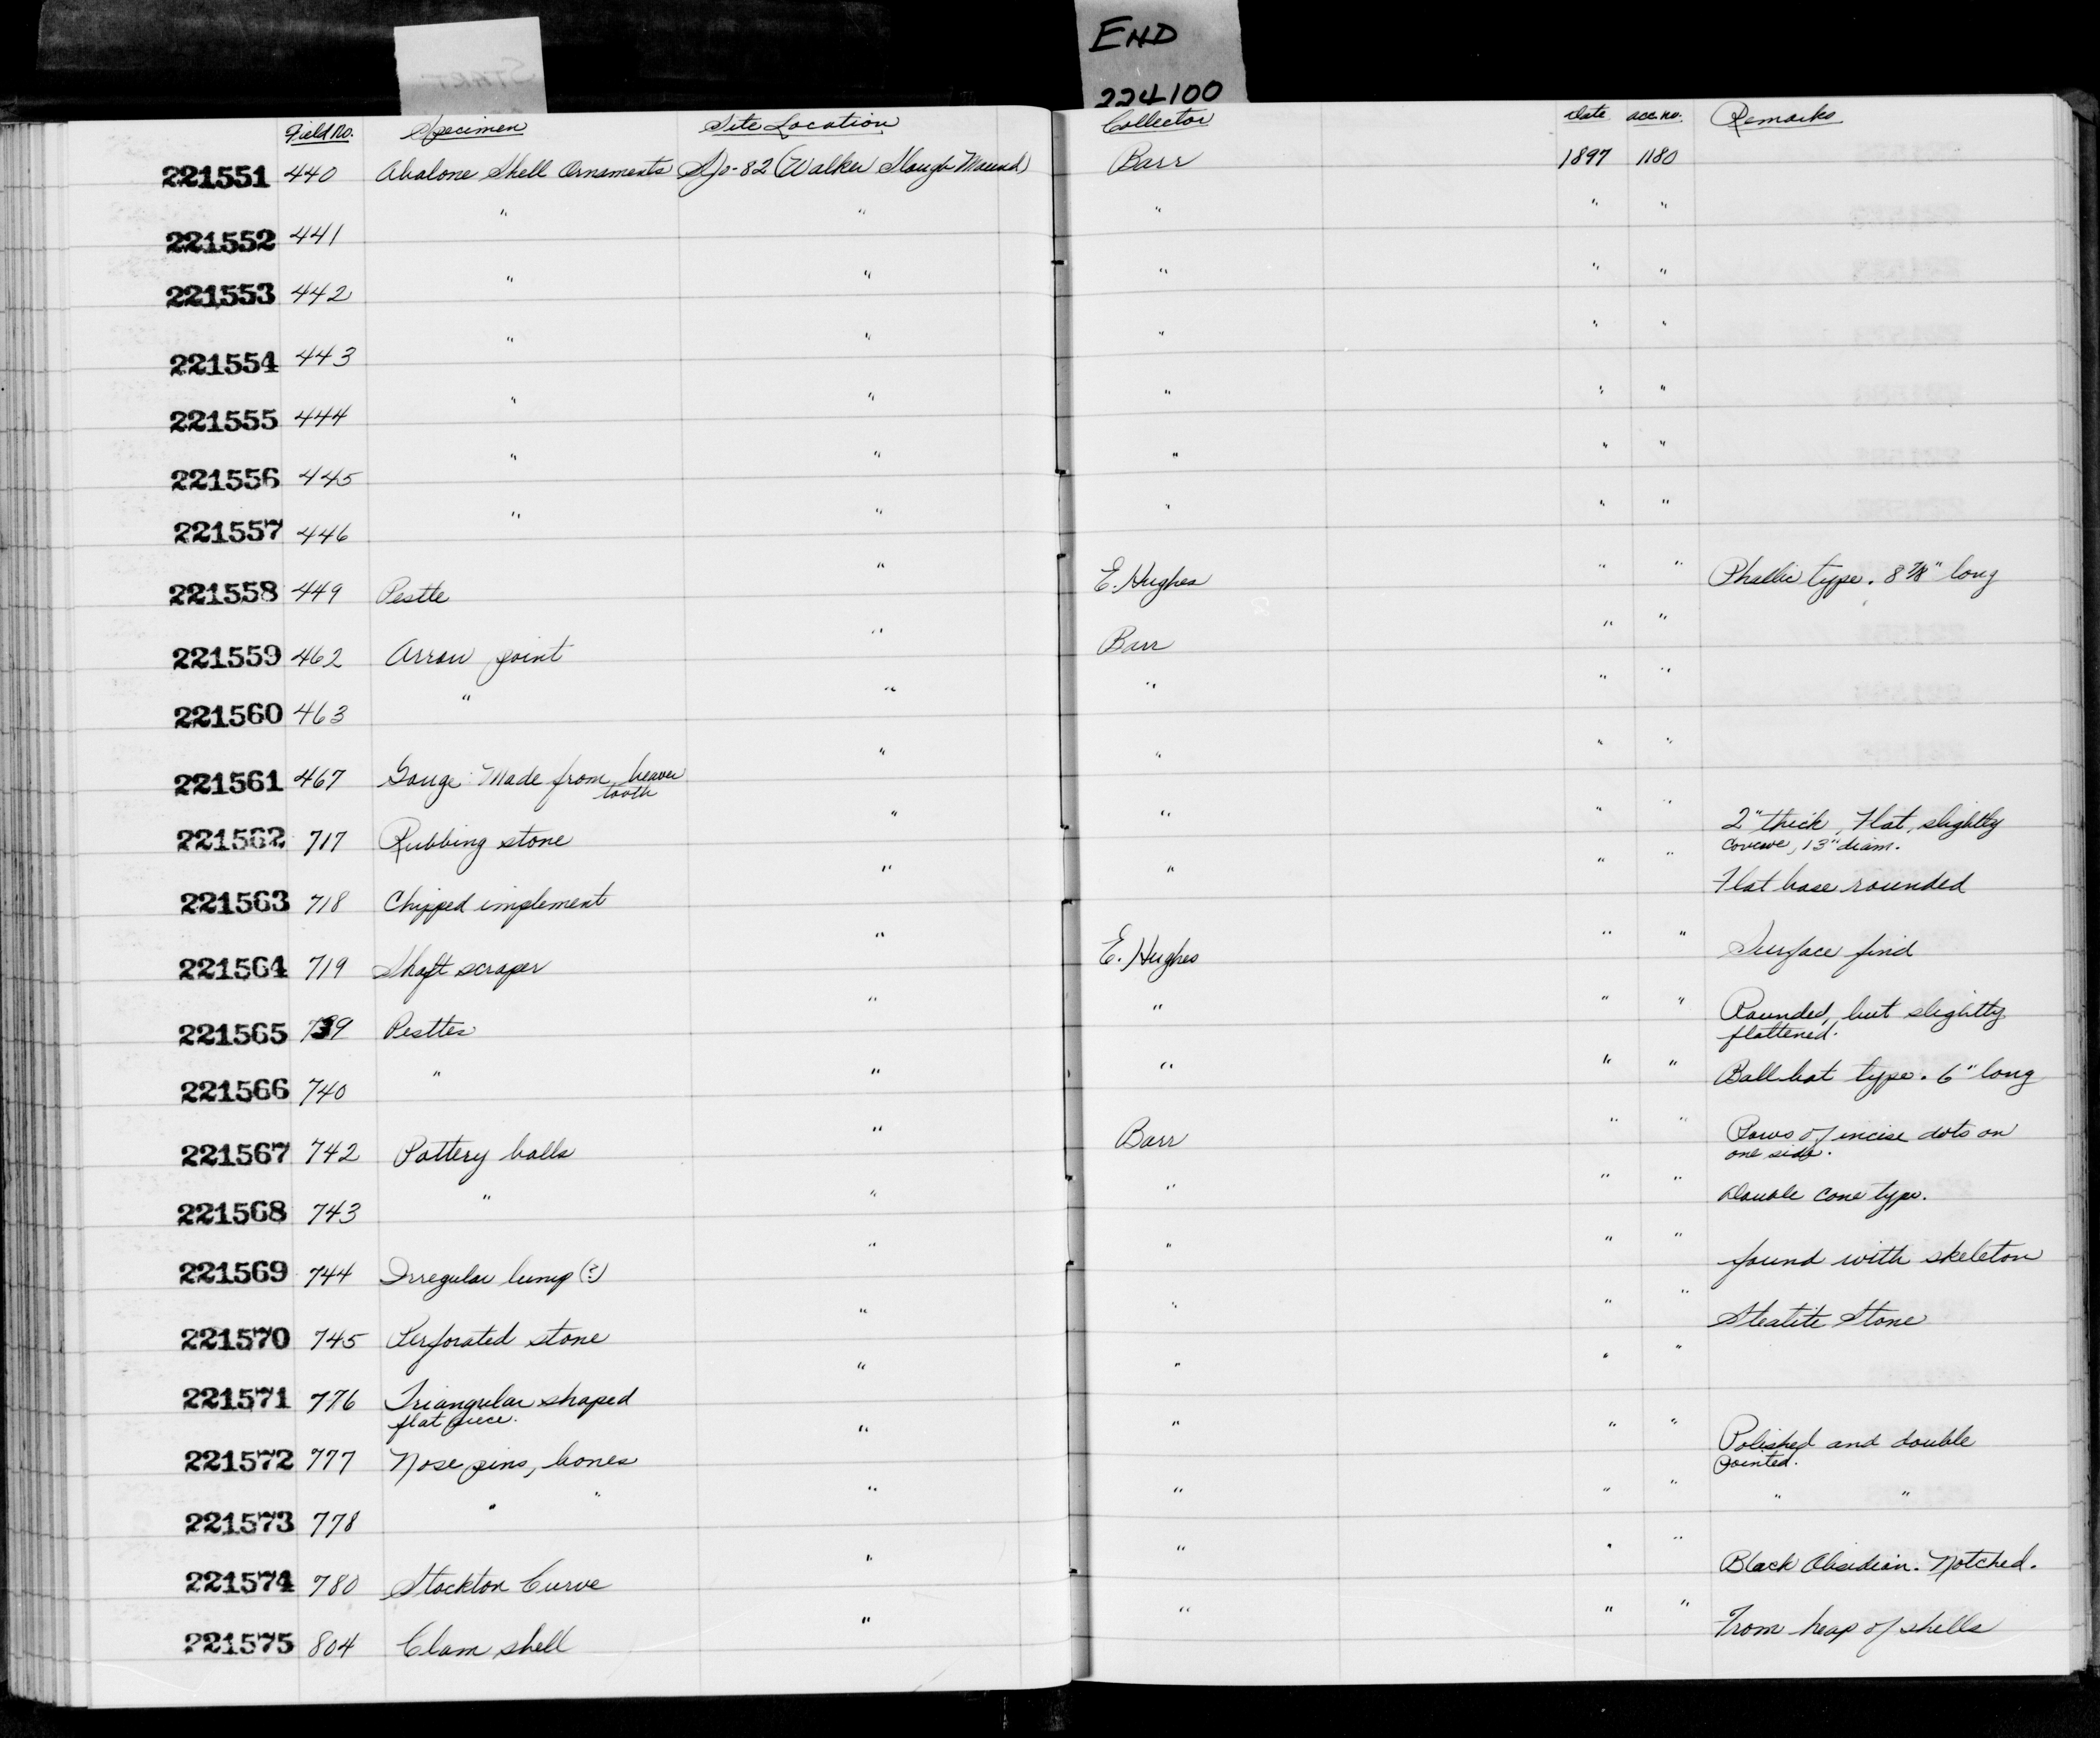 START
END
224100
Field No. Specimen Site Location Collector Date acc. no. Remarks
221551 440 Abalone Shell Ornaments SJo-82 (Walker Slough Mound) Barr 1897 1180
221552 441 " " " " "
221553 442 " " " " "
221554 443 " " " " "
221555 444 " " " " "
221556 445 " " " " "
221557 446 " " " " "
221558 449 Pestle " E. Hughes " " Phallic type. 8 7/8" long
221559 462 Arrow point " Barr " "
221560 463 " " " " "
221561 467 Gouge Made from beaver
tooth " " " "
221562 717 Rubbing stone " " " " 2" thick, Flat, slightly
13" diam.
221563 718 Chipped implement " " " " Flat base rounded
221564 719 Shaft scraper " E. Hughes " " Surface find
221565 739 Pestles " " " " Rounded, but slightly
flattened.
221566 740 " " " " " Ball bat type. 6" long
221567 742 Pottery balls " Barr " " Rows of incise dots on
one side.
221568 743 " " " " " Double cone type.
221569 744 Irregular lump (?) " " " " found with skeleton
221570 745 Perforated stone " " " " Steatite Stone
221571 776 Triangular shaped
flat piece. " " " "
221572 777 Nose pins, bones " " " " Polished and double
pointed.
221573 778 " " " " " " " "
221574 780 Stockton Curve " " " " Black Obsidian. Notched.
221575 804 Clam shell " " " " From heap of shells